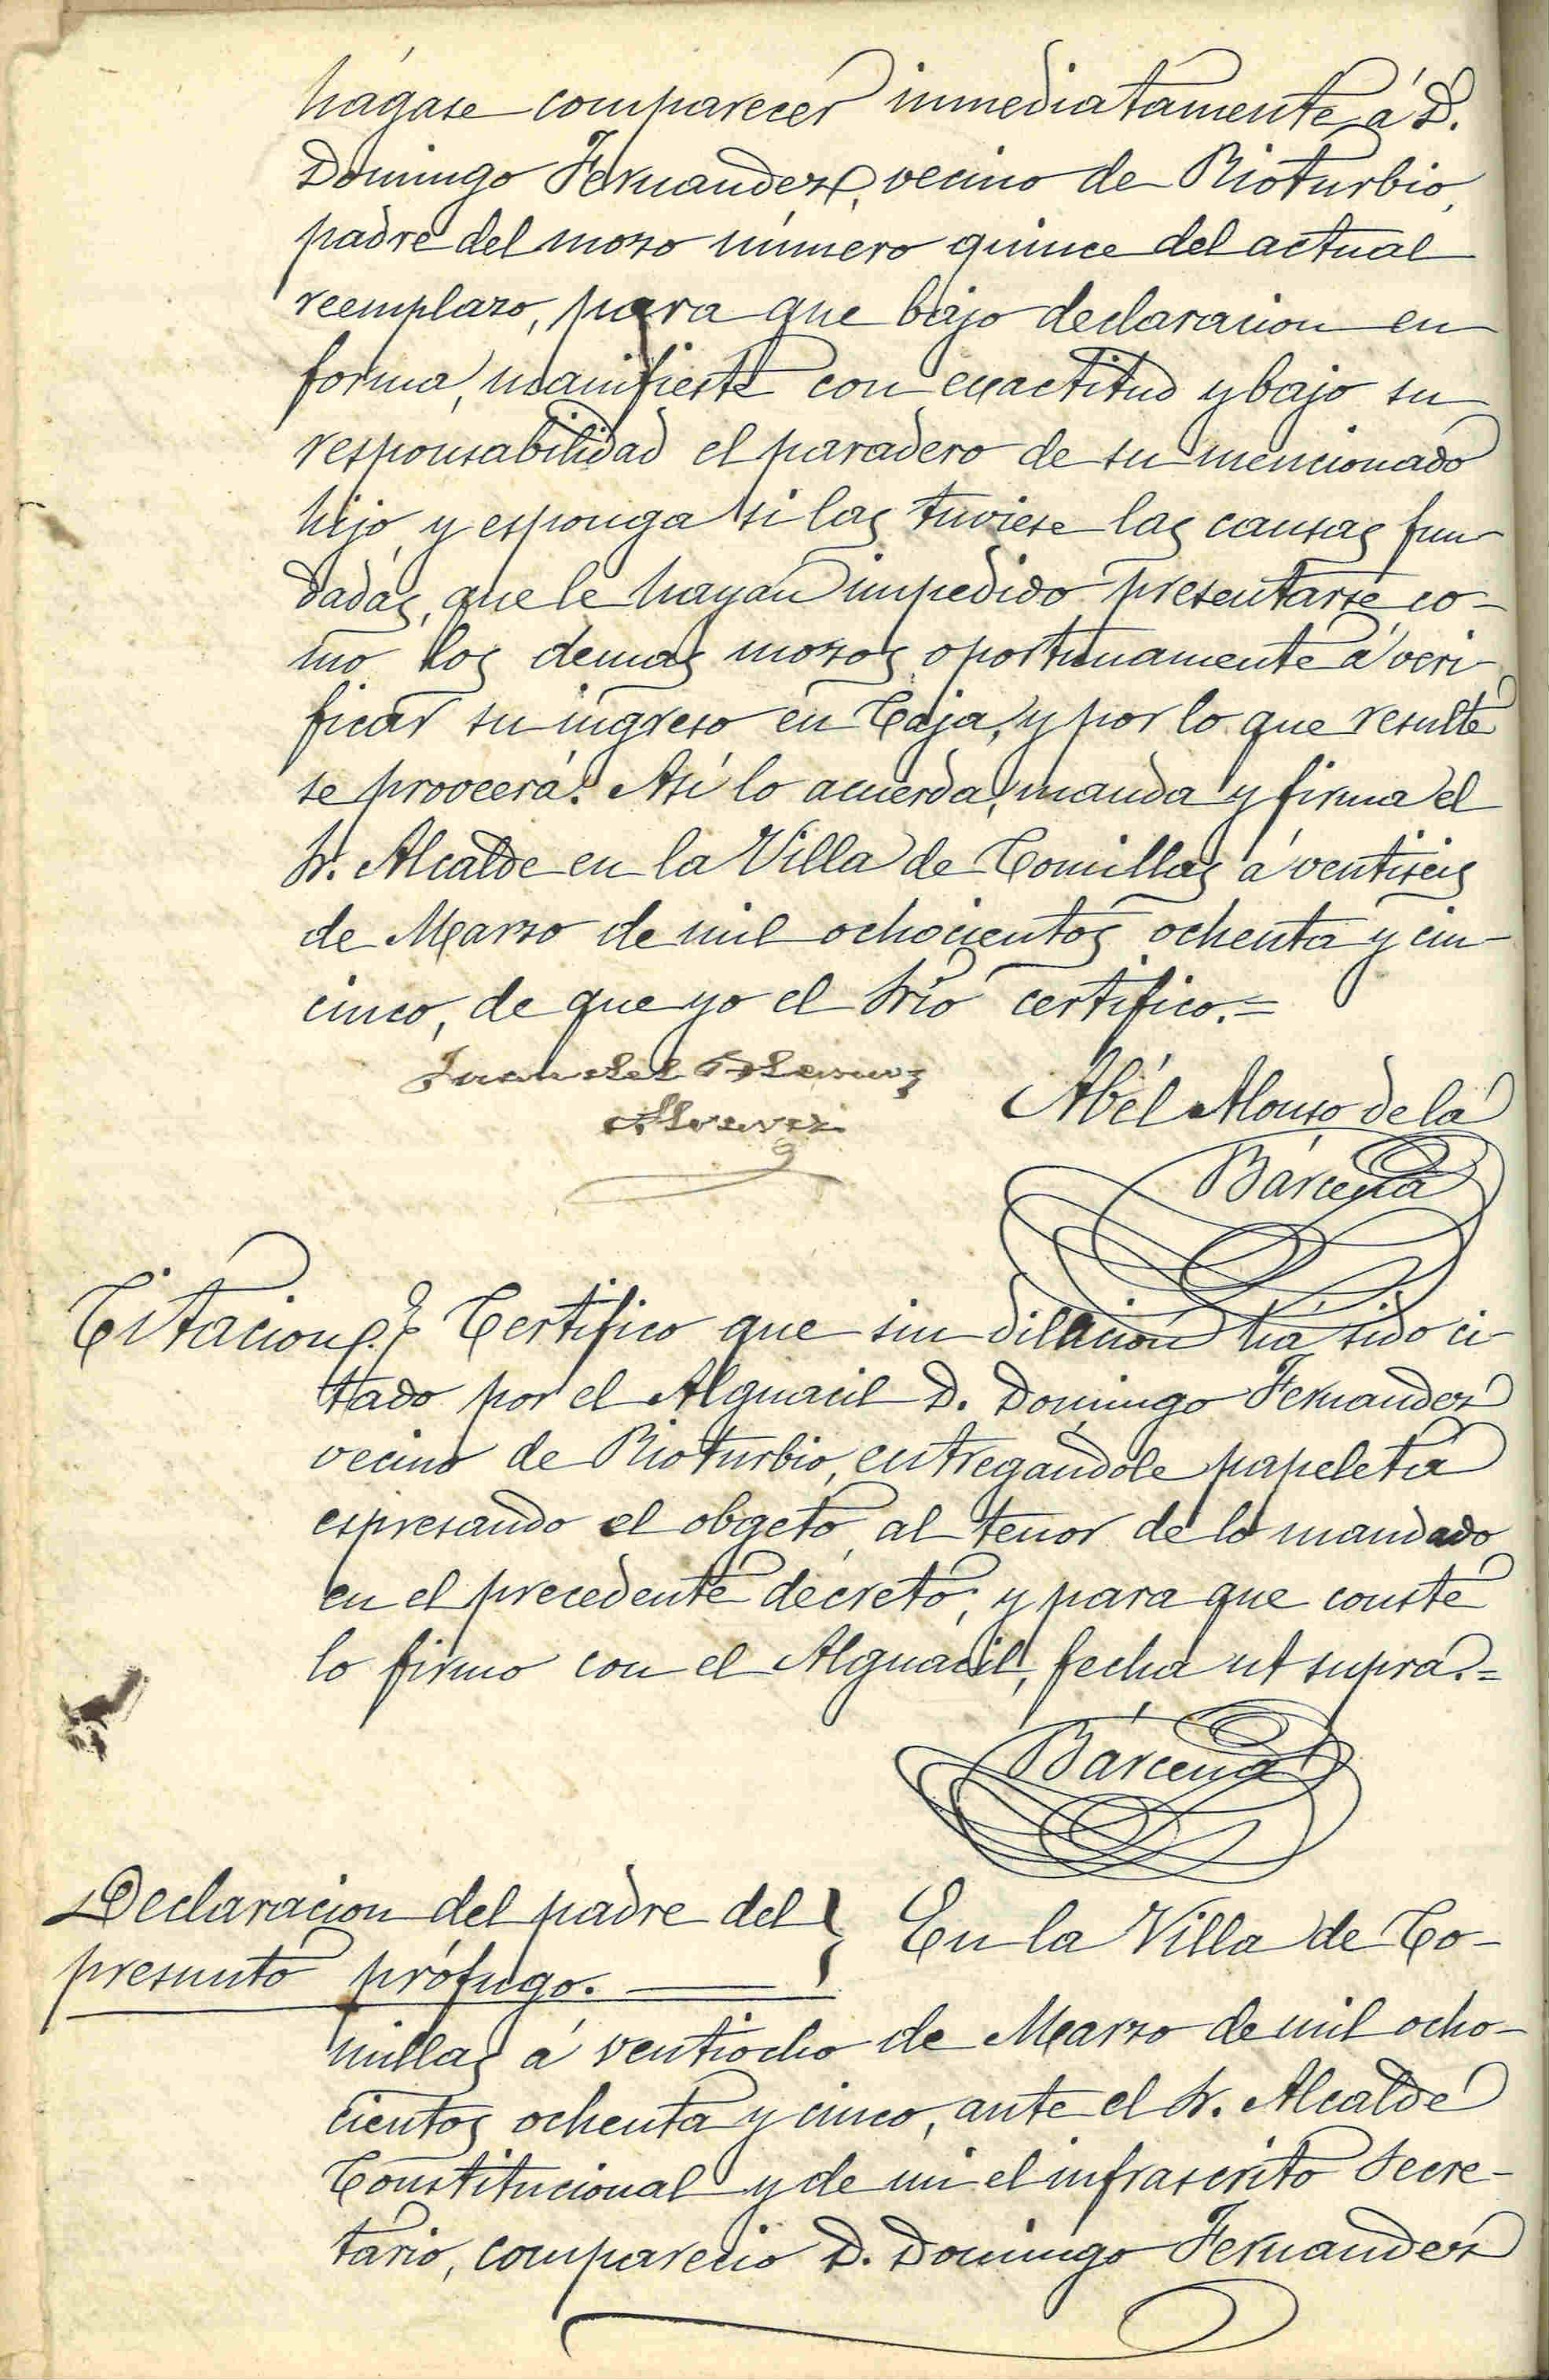 hágase comparecer inmediatamente á D.
Domingo Fernandez, vecino de Rioturbio,
padre del mozo número quince del actual
reemplazo, para que bajo declaracion en
forma, manifieste con exactitud y bajo su
responsabilidad el paradero de su mencionado
hijo, y esponga si las tuviese las causas fun-
dadas, que le hayan impedido presentarse co-
mo los demas mozos oportunamente á veri-
ficar su ingreso en Caja, y por lo que resulte
se proveerá. Así lo acuerda, manda y firma el
Sr. Alcalde en la Villa de Comillas á ventiseis
de Marzo de mil ochocientos ochenta y cin-
cinco, de que yo el Srio certifico.=
Juan del
Abél Alonso de la
Bárcena
Citacion. } Certifico que sin dilacion ha sido ci-
tado por el Alguacil D. Domingo Fernandez
vecino de Rioturbio, entregandole papeleta
espresando el obgeto, al tenor de lo mandado
en el precedente decreto; y para que conste
lo firmo con el Alguacil, fecha ut supra.=
Bárcena
Declaracion del padre del }
presunto prófugo. —
En la Villa de Co-
millas á ventiocho de Marzo de mil ocho-
cientos ochenta y cinco, ante el Sr. Alcalde
Constitucional y de mi el infrascrito Secre-
tario, comparecio D. Domingo Fernandez